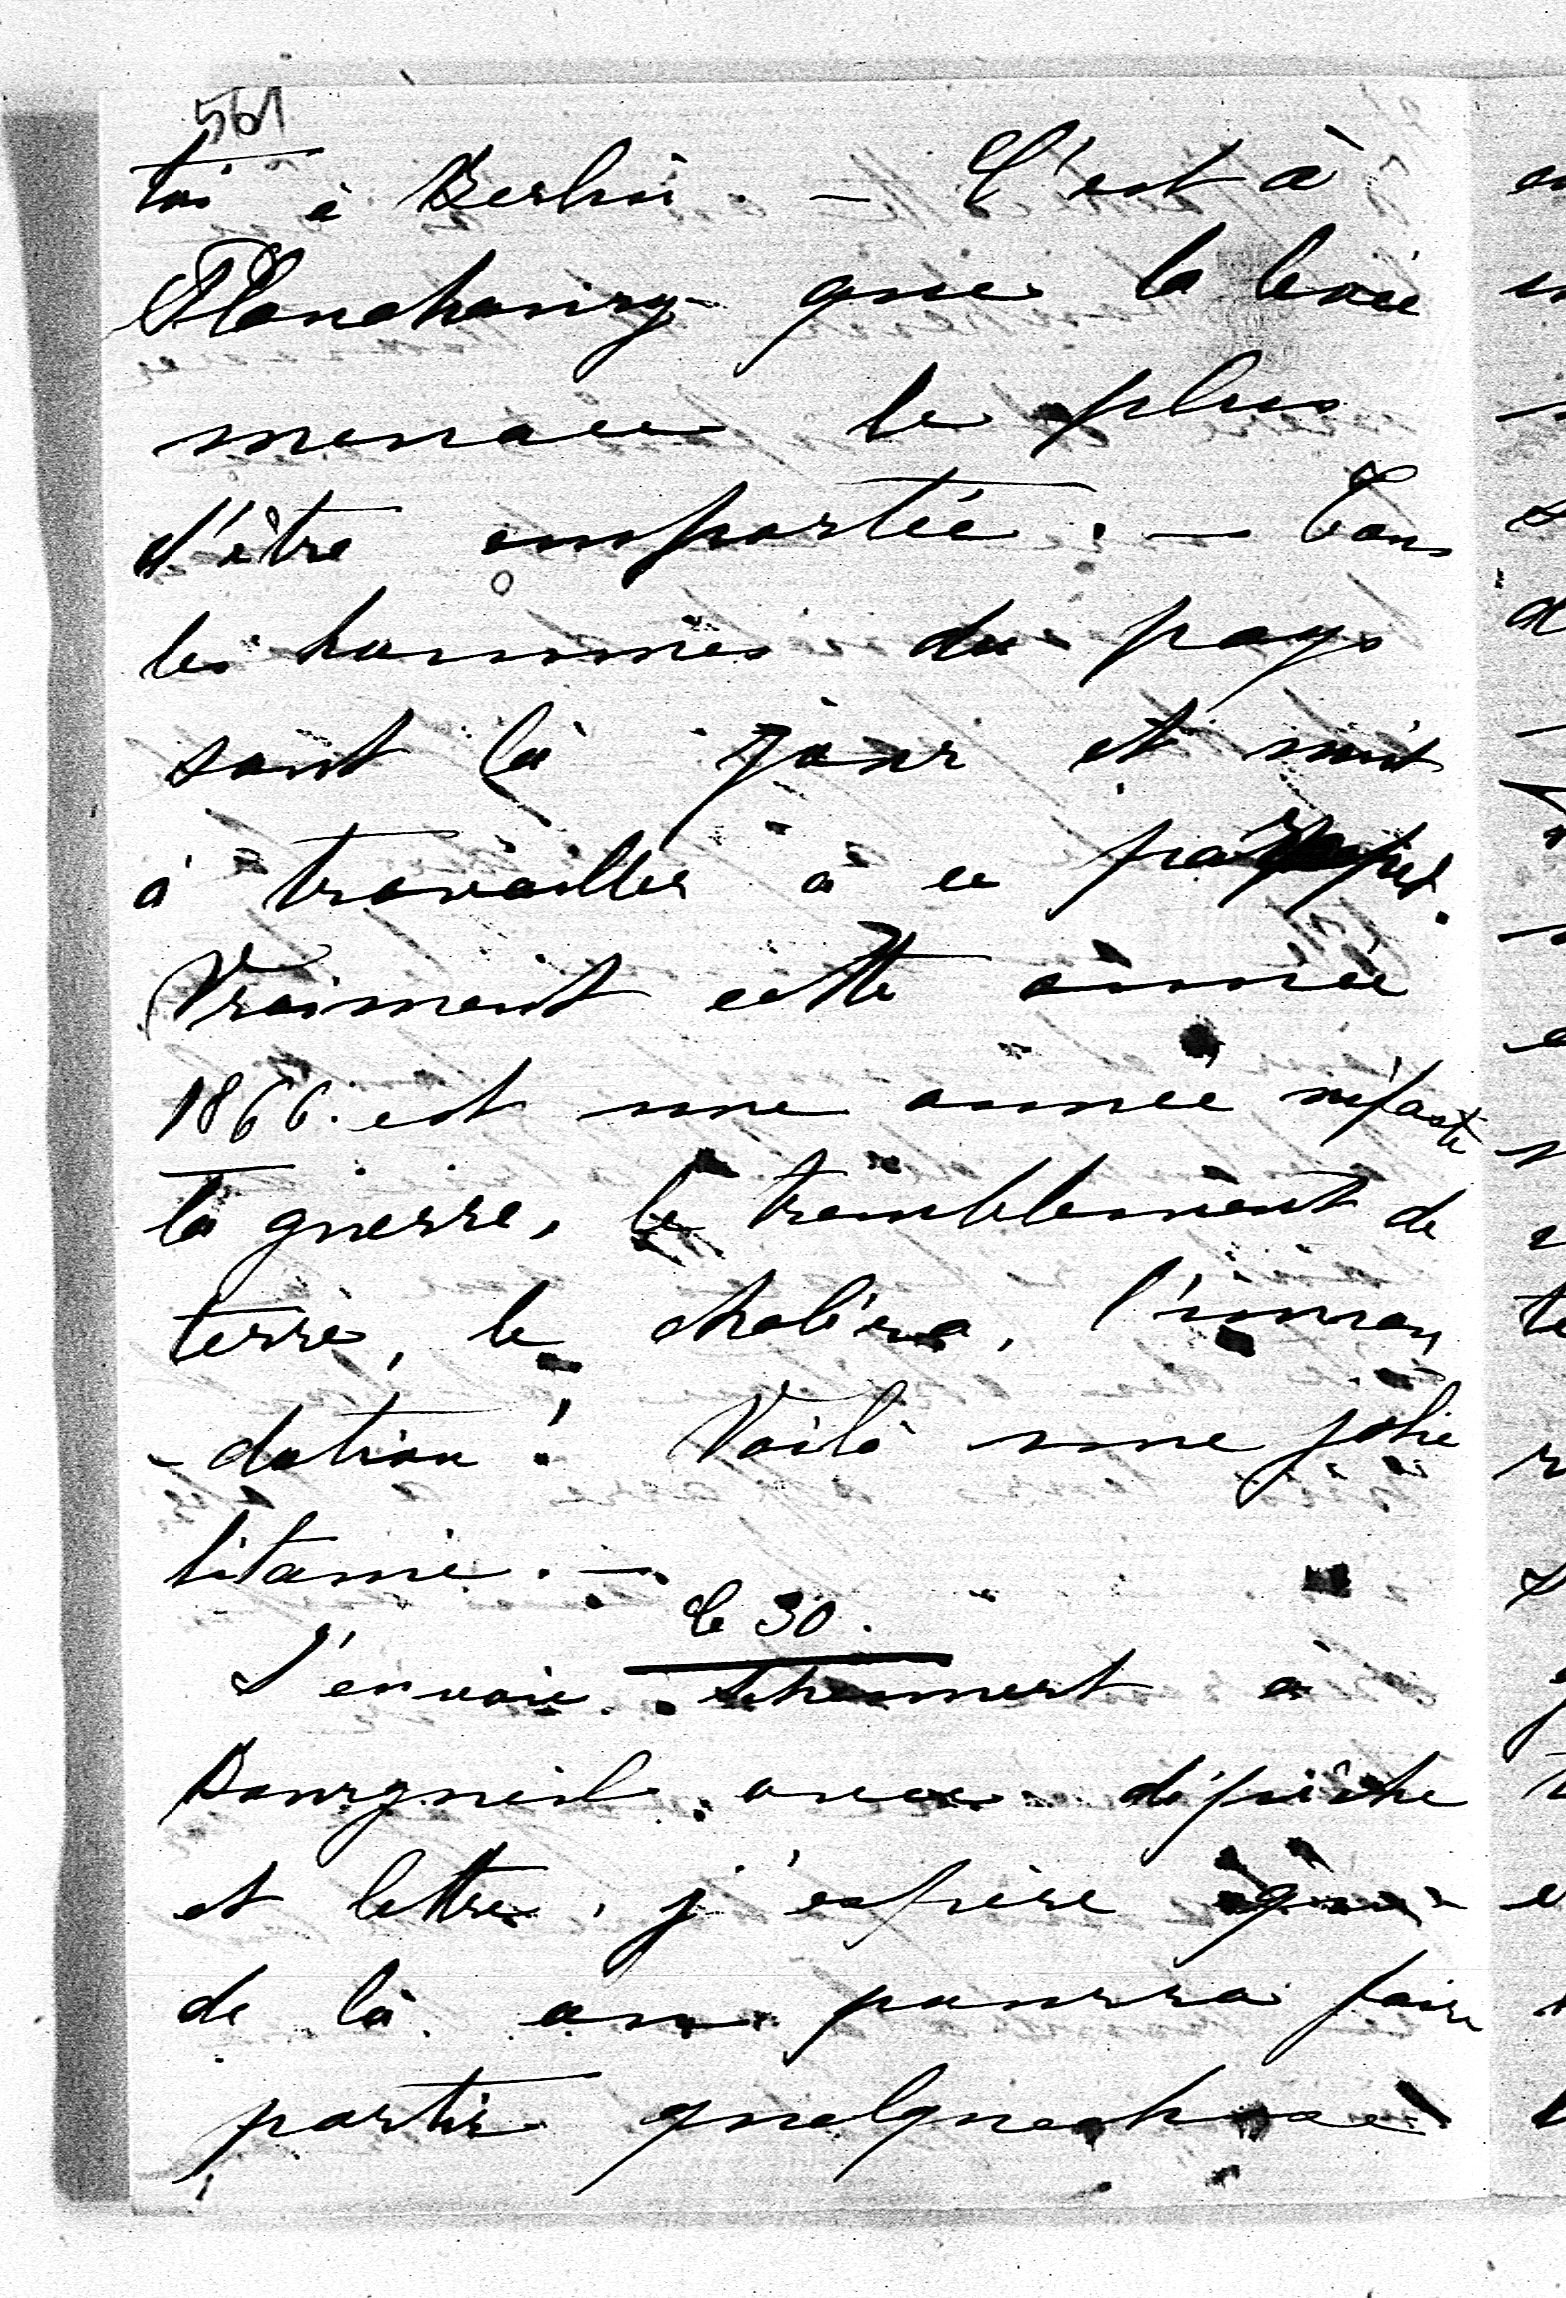 561
toi à Berlin - C'est à
Planchoury que la levée
menace le plus
d'être emportée. - Tous
les hommes du pays
sont là jour et nuit
à travailler à ce parapet.
Vraiment cette année
1866 est une année néfaste
la guerre, le tremblement de
terre, le choléra, l'innon
-dation! Voilà une jolie
litanie. -
le 30.
J'envoie à
Bourgueil avec dépêche
et lettre, j'espère que
de là on pourra faire
partir quelquechose